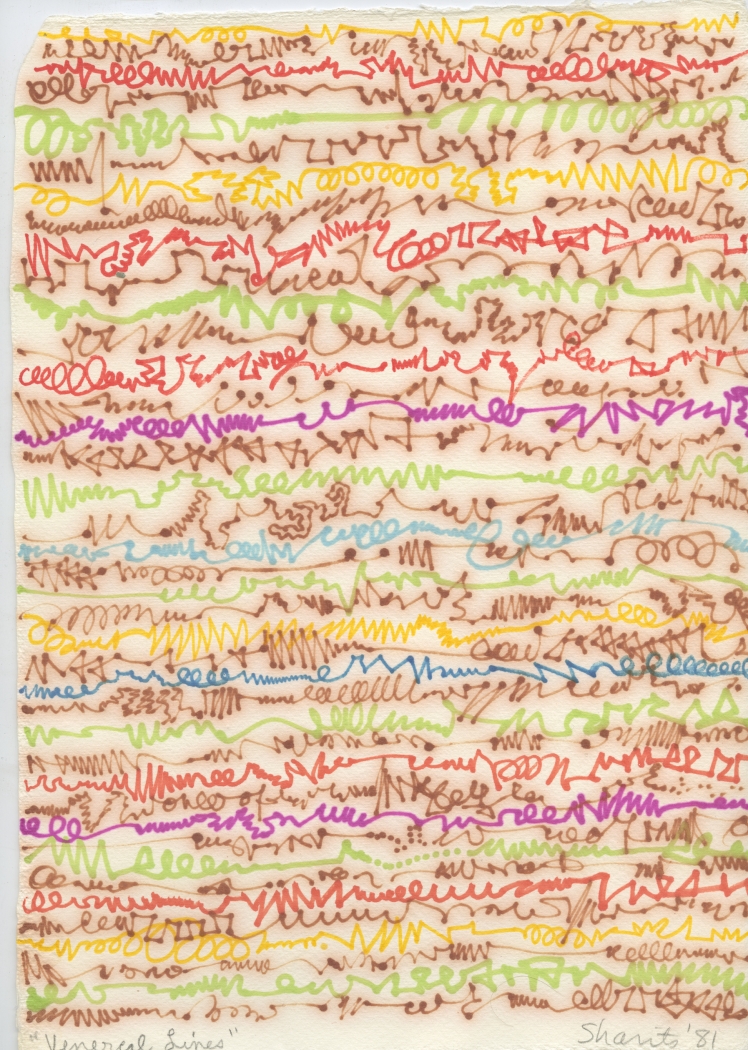 "Venereal Lines" Sharits '81